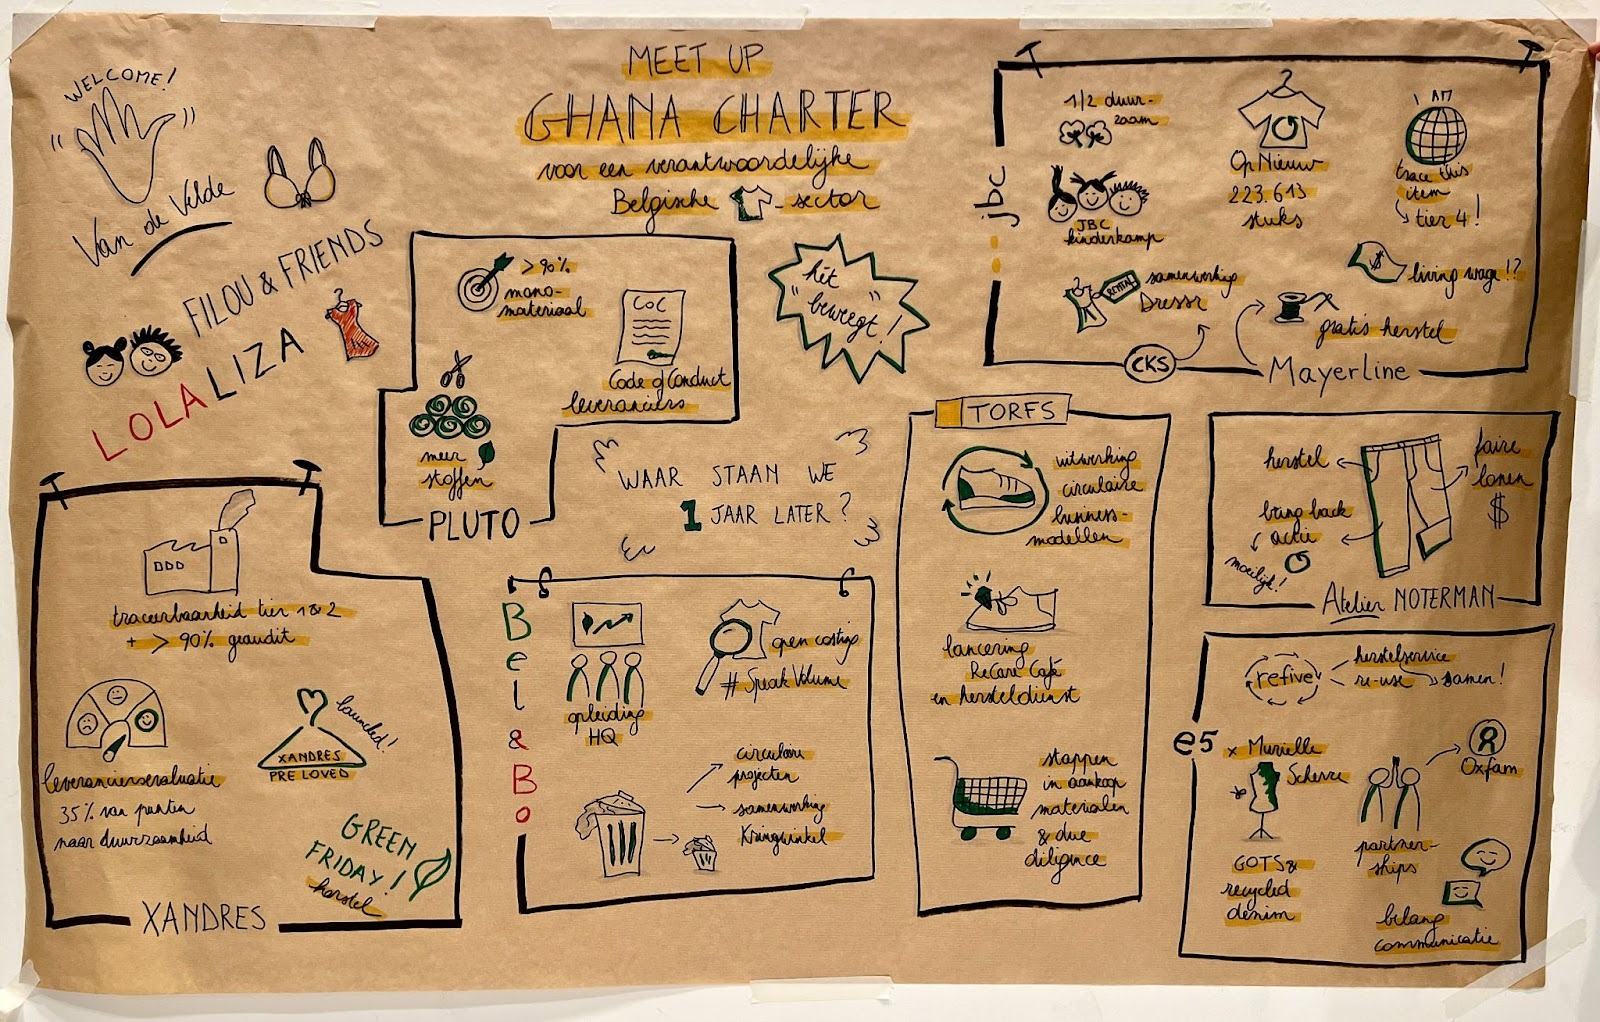 MEET UP
GHANA CHARTER
voor een verantwoordelijke
Belgische -sector
WELCOME!
" "
Van de Velde
FILOU & FRIENDS
LOLALIZA
> 90%
mono-
materiaal
COC
Code of Conduct
leveranciers
meer
stoffen
PLUTO
hét
"beweegt"!
WAAR STAAN WE
1 JAAR LATER?
jbc
1/2 duur-
zaam
JBC
kinderkamp
Op Nieuw
223.613
stuks
I AM
trace this
item
tier 4!
$
living wage!?
RENTAL
samenwerking
Dressr
CKS
gratis herstel
Mayerline
traceerbaarheid tier 1 & 2
+ > 90% geaudit
leveranciersevaluatie
35% van punten
naar duurzaamheid
launched!
XANDRES
PRE LOVED
GREEN
FRIDAY!
herstel
XANDRES
Bel & Bo
opleiding
HQ
open costing
# SpeakVolume
circulaire
projecten
samenwerking
Kringwinkel
TORFS
uitwerking
circulaire
business-
modellen
lancering
ReCare Café
en hersteldienst
stappen
in aankoop
materialen
& due
diligence
herstel
faire
lonen
$
bring back
actie
moeilijk!
Atelier NOTERMAN
e5
refive
herstelservice
re-use
samen!
x Murielle
Scherre
GOTS &
recycled
denim
partner-
ships
Oxfam
belang
communicatie